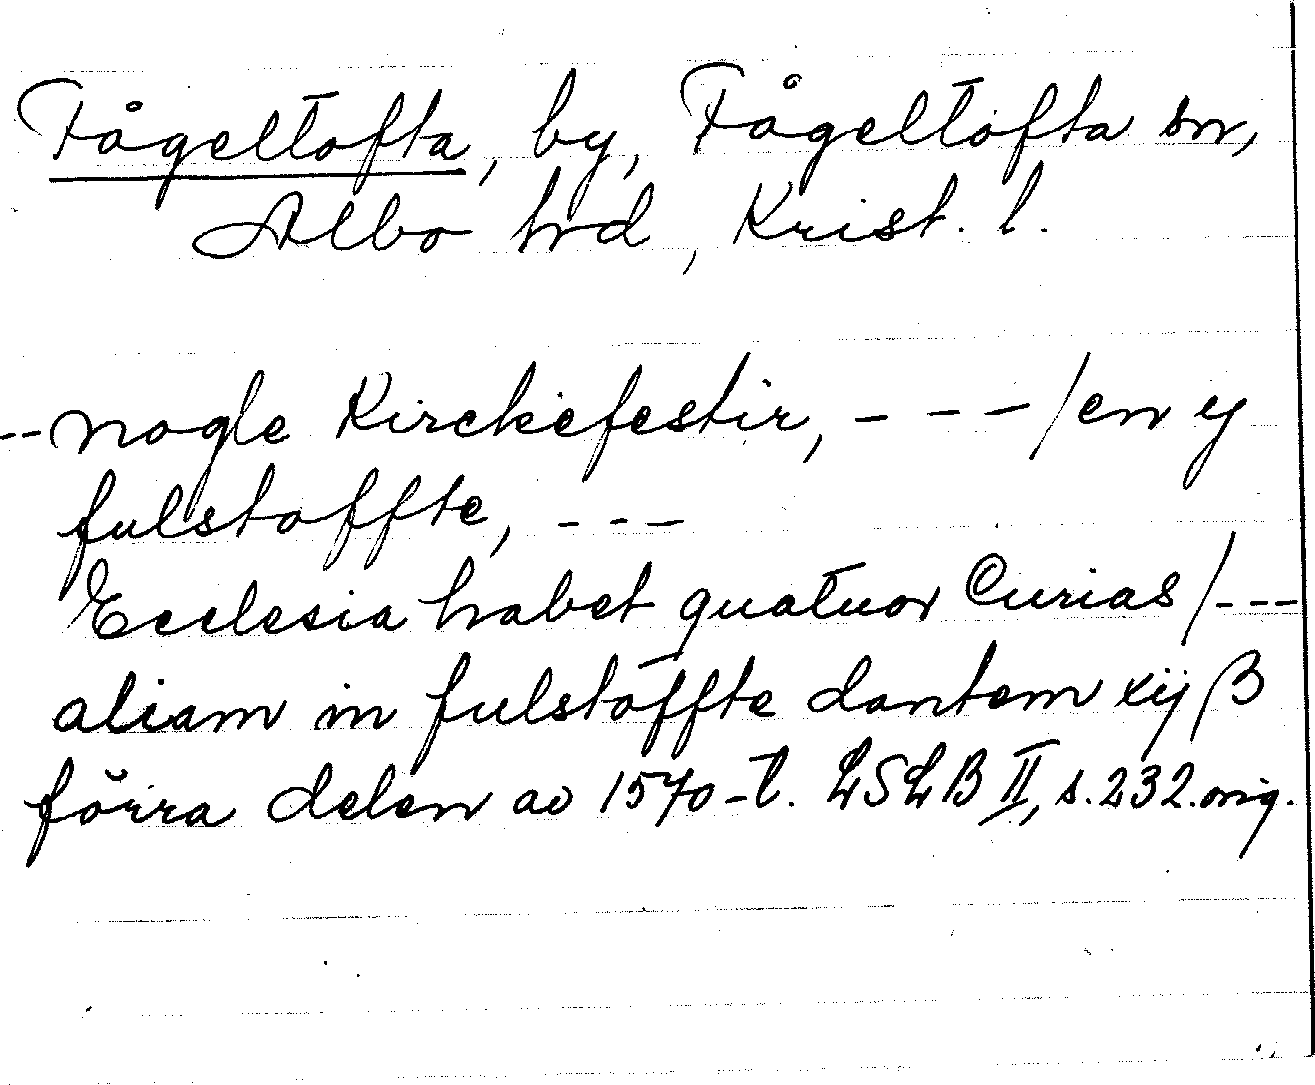 Fågeltofta, by, Fågeltofta sn,
Albo hd, Krist. l.
--nogle Kirckefestir, - - - / en y
fulstoffte, - - -
Ecclesia habet quatuor Curias / ---
aliam in fulstoffte dantem xij β
förra delen av 1570-t. LSLB II, s. 232. orig.